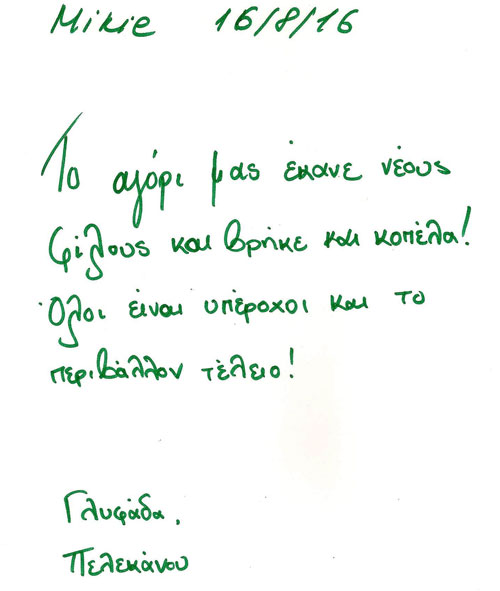 Mikie 16/8/16
Το αγόρι μας έκανε νέους
φίλους και βρήκε και κοπέλα!
Όλοι είναι υπέροχοι και το
περιβάλλον τέλειο!
Γλυφάδα,
Πελεκάνου